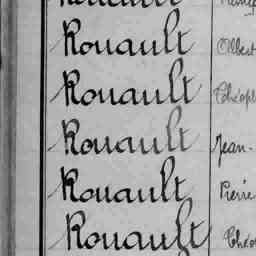 Rouault
Rouault Albert
Rouault Théoph
Rouault Jean-
Rouault Pierre
Rouault Théo